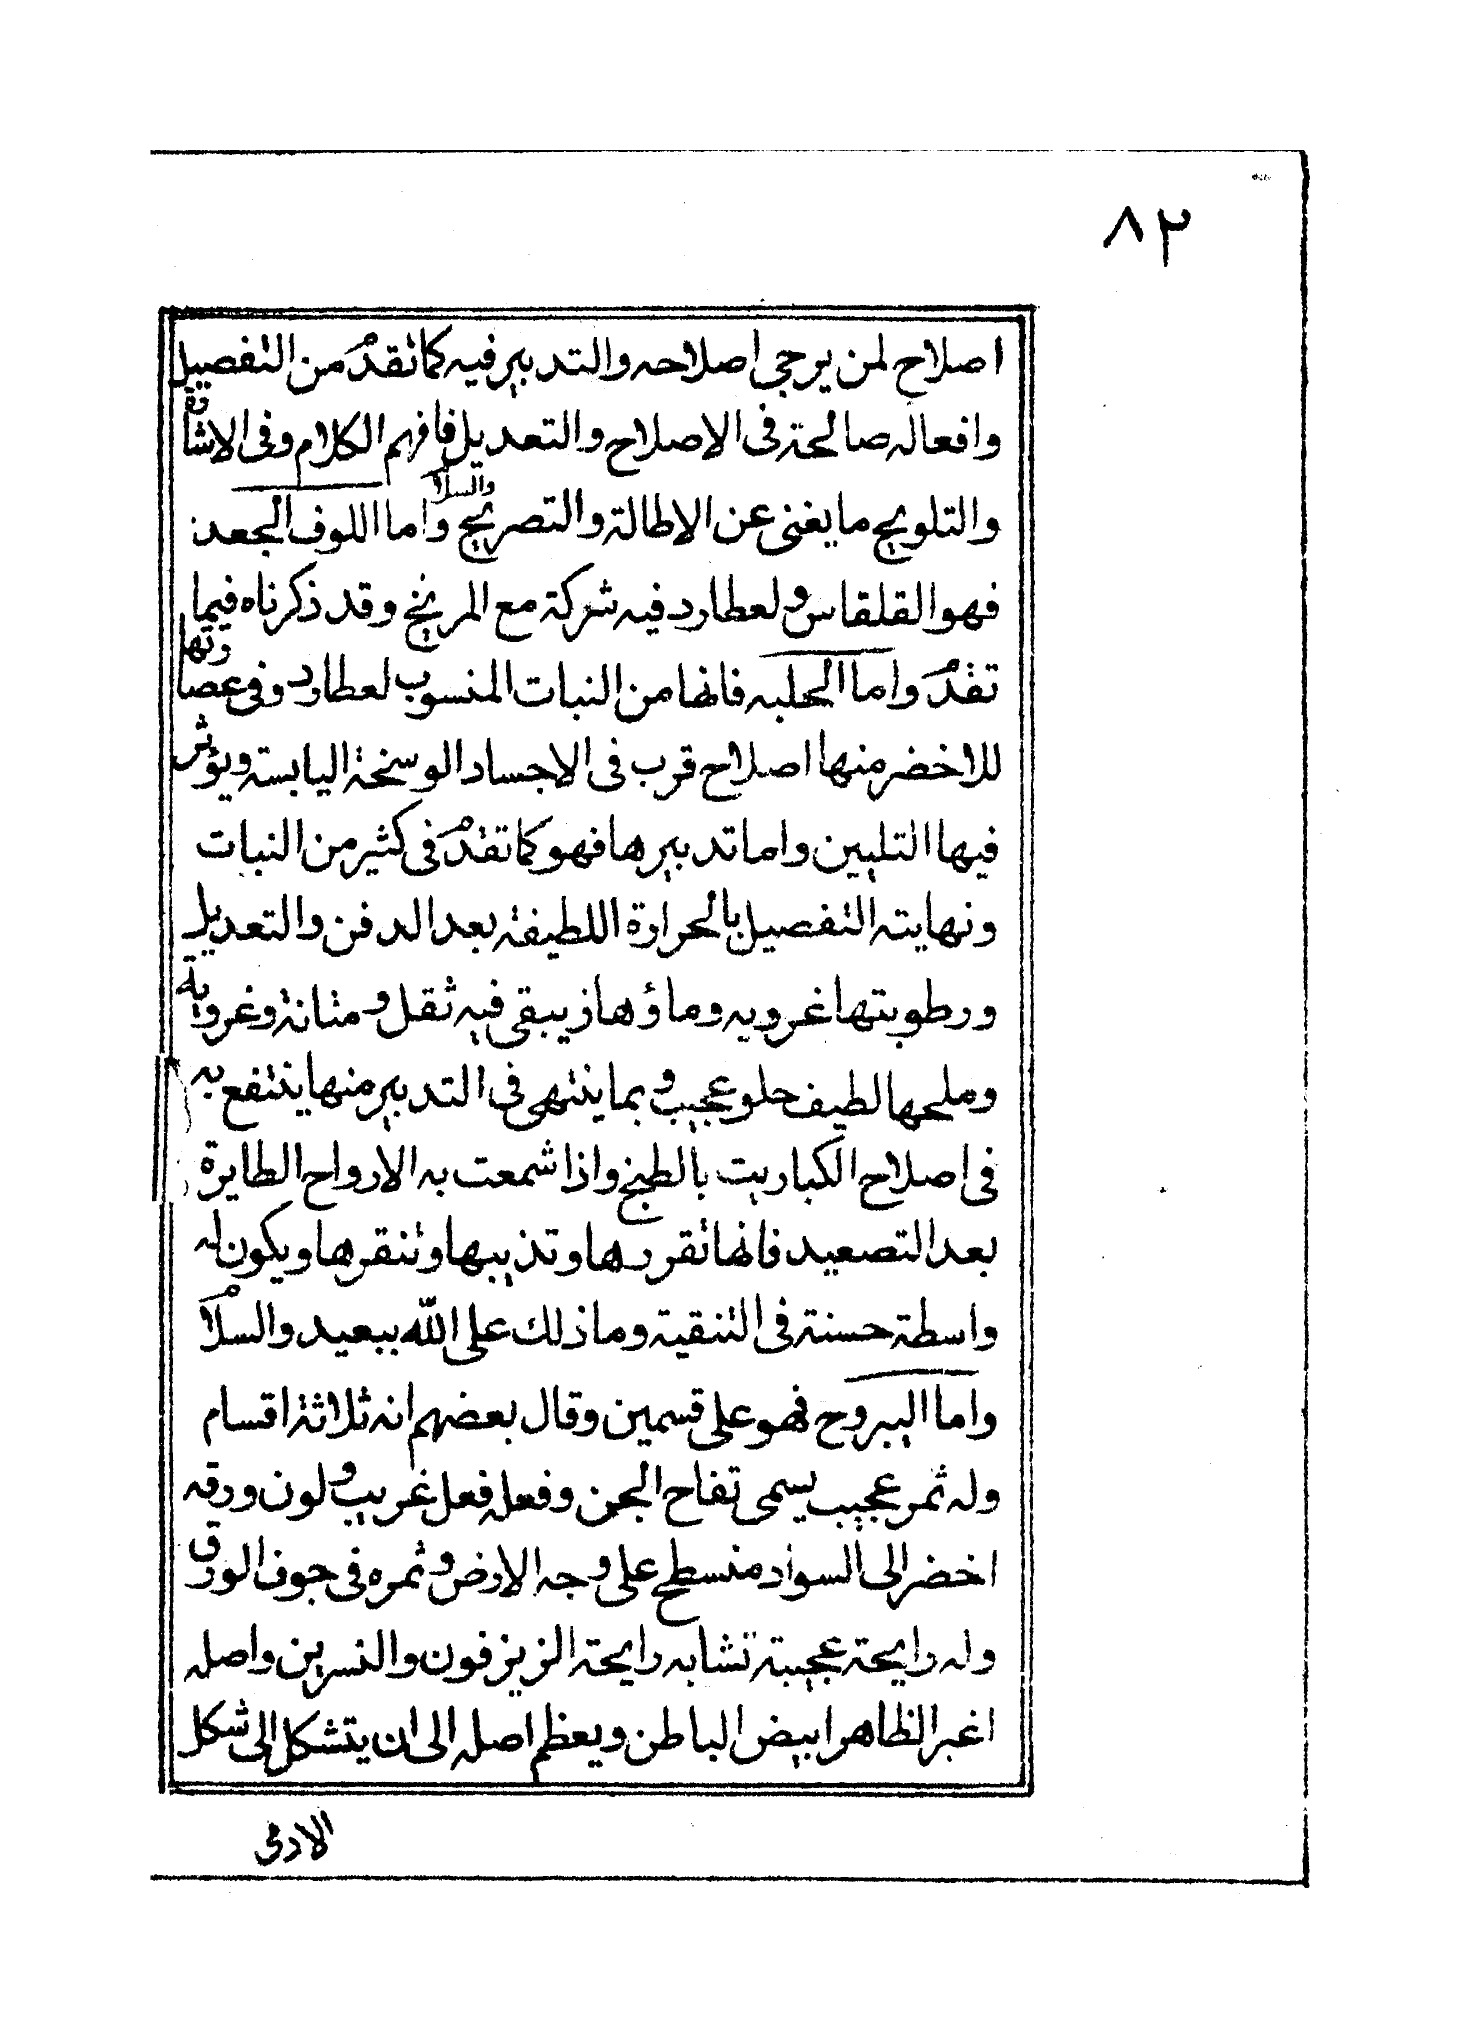 ٨٢
اصلاح لمن يرجى اصلاحه والتدبير فيه كما تقدم من التفصيل
وافعاله صالحة فى الاصلاح والتعديل فافهم الكلام وفى الاشارة
والتلويح ما يغنى عن الاطالة والتصريح والسلام واما اللوف الجعد
فهو القلقاس ولعطارد فيه شركة مع المريخ وقد ذكرناه فيما
تقدم واما الحلبه فانها من النبات المنسوب لعطارد وفى عصارتها
للاخضر منها اصلاح قرب فى الاجساد الوسخة اليابسة ويؤثر
فيها التليين واما تدبيرها فهو كما تقدم فى كثير من النبات
ونهايته التفصيل بالحرارة اللطيفة بعد الدفن والتعديل
ورطوبتها غرويه وماؤها زيبقى فيه ثقل ومتانة وغروية
وملحها لطيف حلو عجيب وبما ينتهى فى التدبير منها ينتفع به
فى اصلاح الكباريت بالطبخ واذا شمعت به الارواح الطايرة
بعد التصعيد فانها تقررها وتذيبها وتنقرها ويكون له
واسطة حسنة فى التنقية وما ذلك على الله ببعيد والسلام
واما اليبروح فهو على قسمين وقال بعضهم انه ثلاثة اقسام
وله ثمر عجيب يسمى تفاح الجن وفعله فعل غريب ولون ورقه
اخضر الى السواد منسطح على وجه الارض وثمره فى جوف الورق
وله رايحة عجيبة تشابه رايحة الزيزفون والنسرين واصله
اغبر الظاهر ابيض الباطن ويعظم اصله الى ان يتشكل الى شكل
الادمى